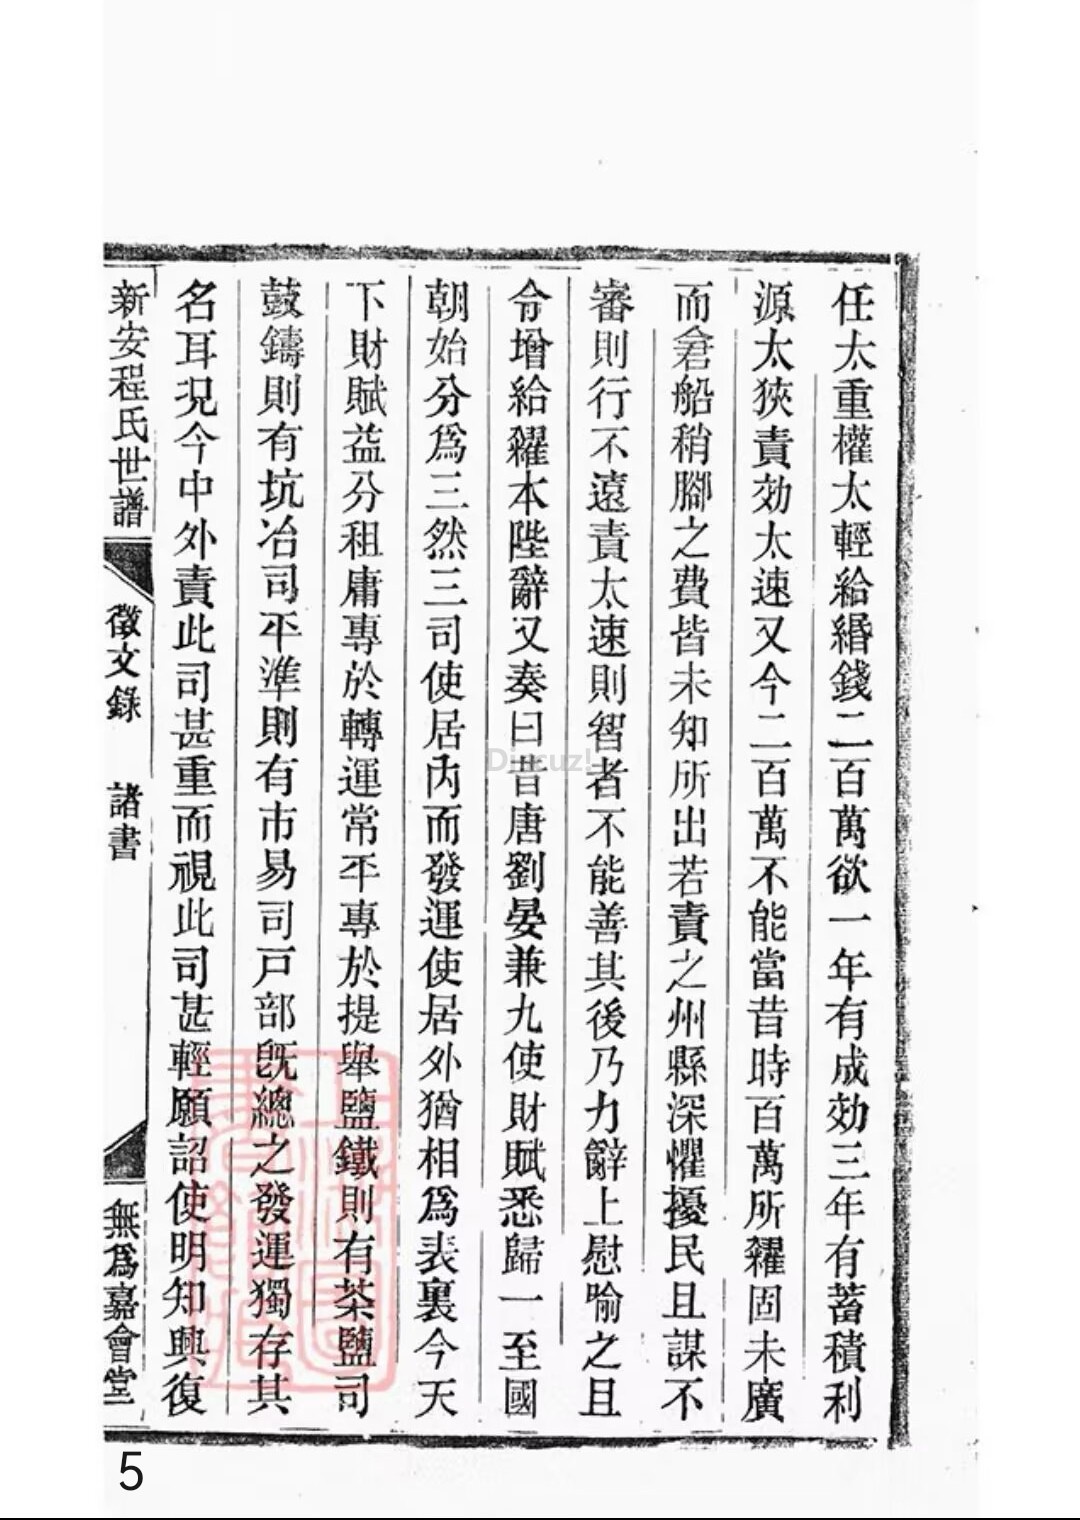 任太重權太輕給緡錢二百萬欲一年有成効三年有蓄積利
源太狹責効太速又今二百萬不能當昔時百萬所糴固未廣
而倉船稍腳之費皆未知所出若責之州縣深懼擾民且謀不
審則行不遠責太速則智者不能善其後乃力辭上慰喻之且
令增給糴本陛辭又奏曰昔唐劉晏兼九使財賦悉歸一至國
朝始分爲三然三司使居內而發運使居外猶相爲表裏今天
下財賦益分租庸專於轉運常平專於提舉鹽鐵則有茶鹽司
鼓鑄則有坑冶司平準則有市易司戸部旣總之發運獨存其
名耳況今中外責此司甚重而視此司甚輕願詔使明知興復
新安程氏世譜 徵文錄 諸書 無爲嘉會堂
Discuz!
5